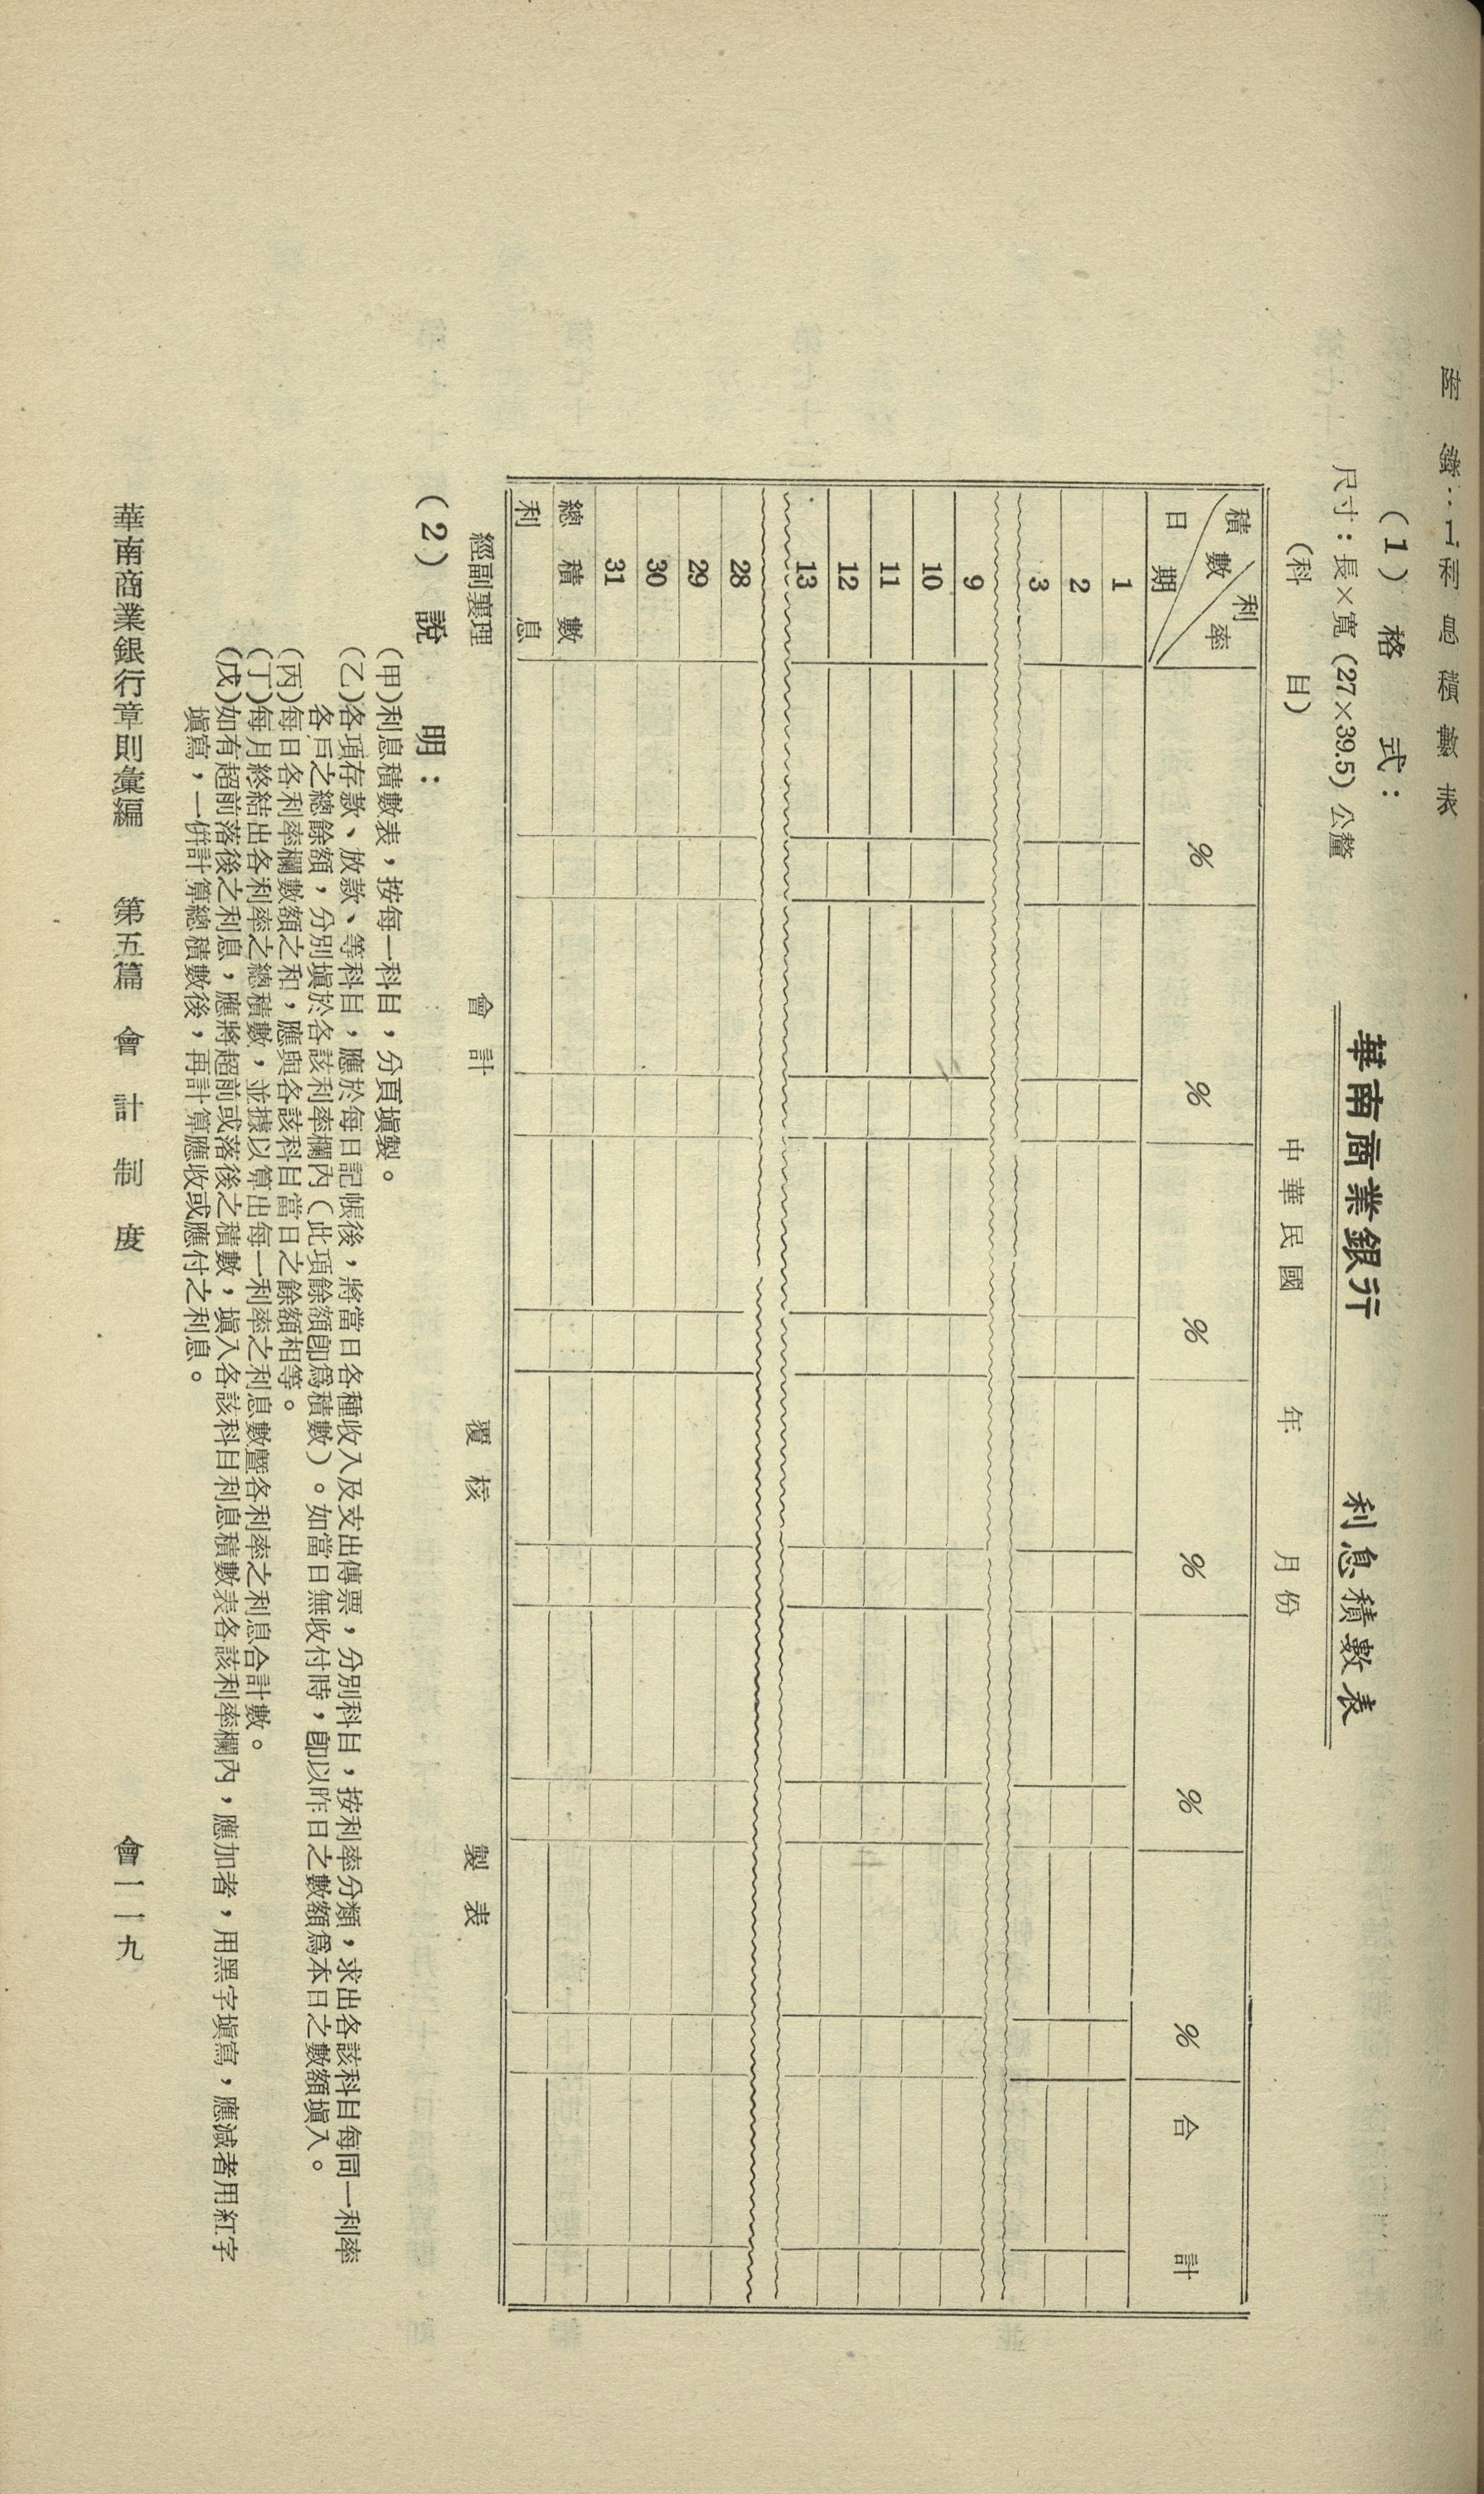 (1) 格式：
尺寸：長×寬 (27×39.5) 公釐
華南商業銀行 利息積數表
(科 目) 中華民國 年 月份
積數 利率 日期 % % % % % % 合計
1
2
3
9
10
11
12
13
28
29
30
31
總積數
利息
經副襄理 會計 覆核 製表
(2) 說明：
(甲)利息積數表，按每一科目，分頁塡製。
(乙)各項存款、放款、等科目，應於每日記帳後，將當日各種收入及支出傳票，分別科目，按利率分類，求出各該科目每同一利率
各戶之總餘額，分別塡於各該利率欄內（此項餘額卽爲積數）。如當日無收付時，卽以昨日之數額爲本日之數額塡入。
(丙)每日各利率欄數額之和，應與各該科目當日之餘額相等。
(丁)每月終結出各利率之總積數，並據以算出每一利率之利息數曁各利率之利息合計數。
(戊)如有超前落後之利息，應將超前或落後之積數，塡入各該科目利息積數表各該利率欄內，應加者，用黑字塡寫，應減者用紅字
塡寫，一併計算總積數後，再計算應收或應付之利息。
華南商業銀行章則彙編 第五編 會計制度 會一一九